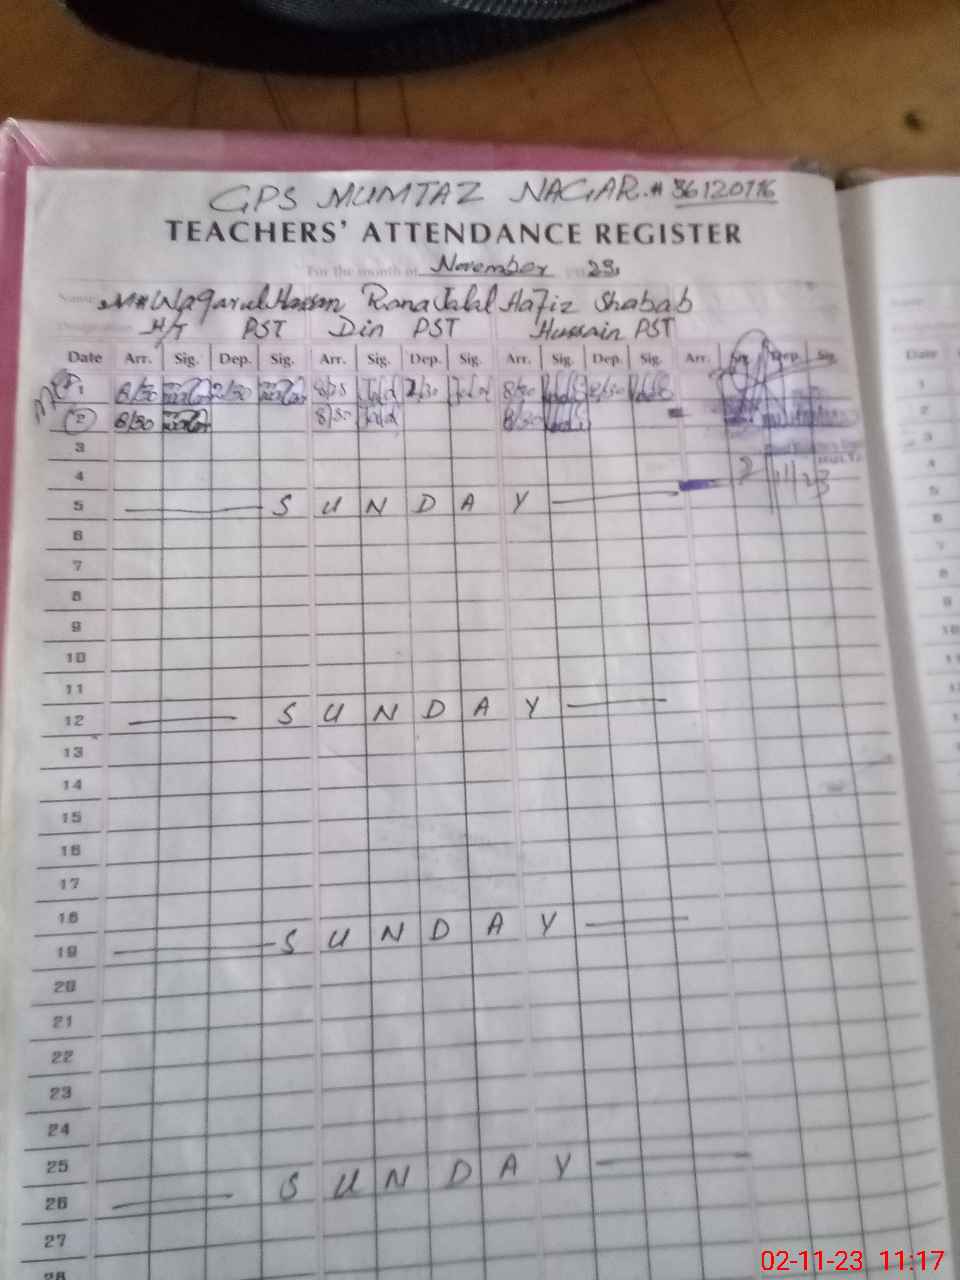 GPS MUMTAZ NAGAR. # 36120116
TEACHERS' ATTENDANCE REGISTER
For the month of November 23
Name Rana Jalal Hafiz Shabab
H/T PST Din PST Hussain PST
Date Arr. Sig. Dep. Sig. Arr. Sig. Dep. Sig. Arr. Sig. Dep. Sig. Arr. Sig. Dep. Sig. Date
1 8/30 2/30 8/25 Jalal 2/30 Jalal 8/30 2/30 1
2 8/30 8/30 Jalal 8/30 2
3 3
4 2/11/23 4
5 SUNDAY 5
6 6
7 7
8 8
9 9
10 10
11 11
12 SUNDAY
13
14
15
16
17
18
19 SUNDAY
20
21
22
23
24
25
26 SUNDAY
27
28
02-11-23 11:17